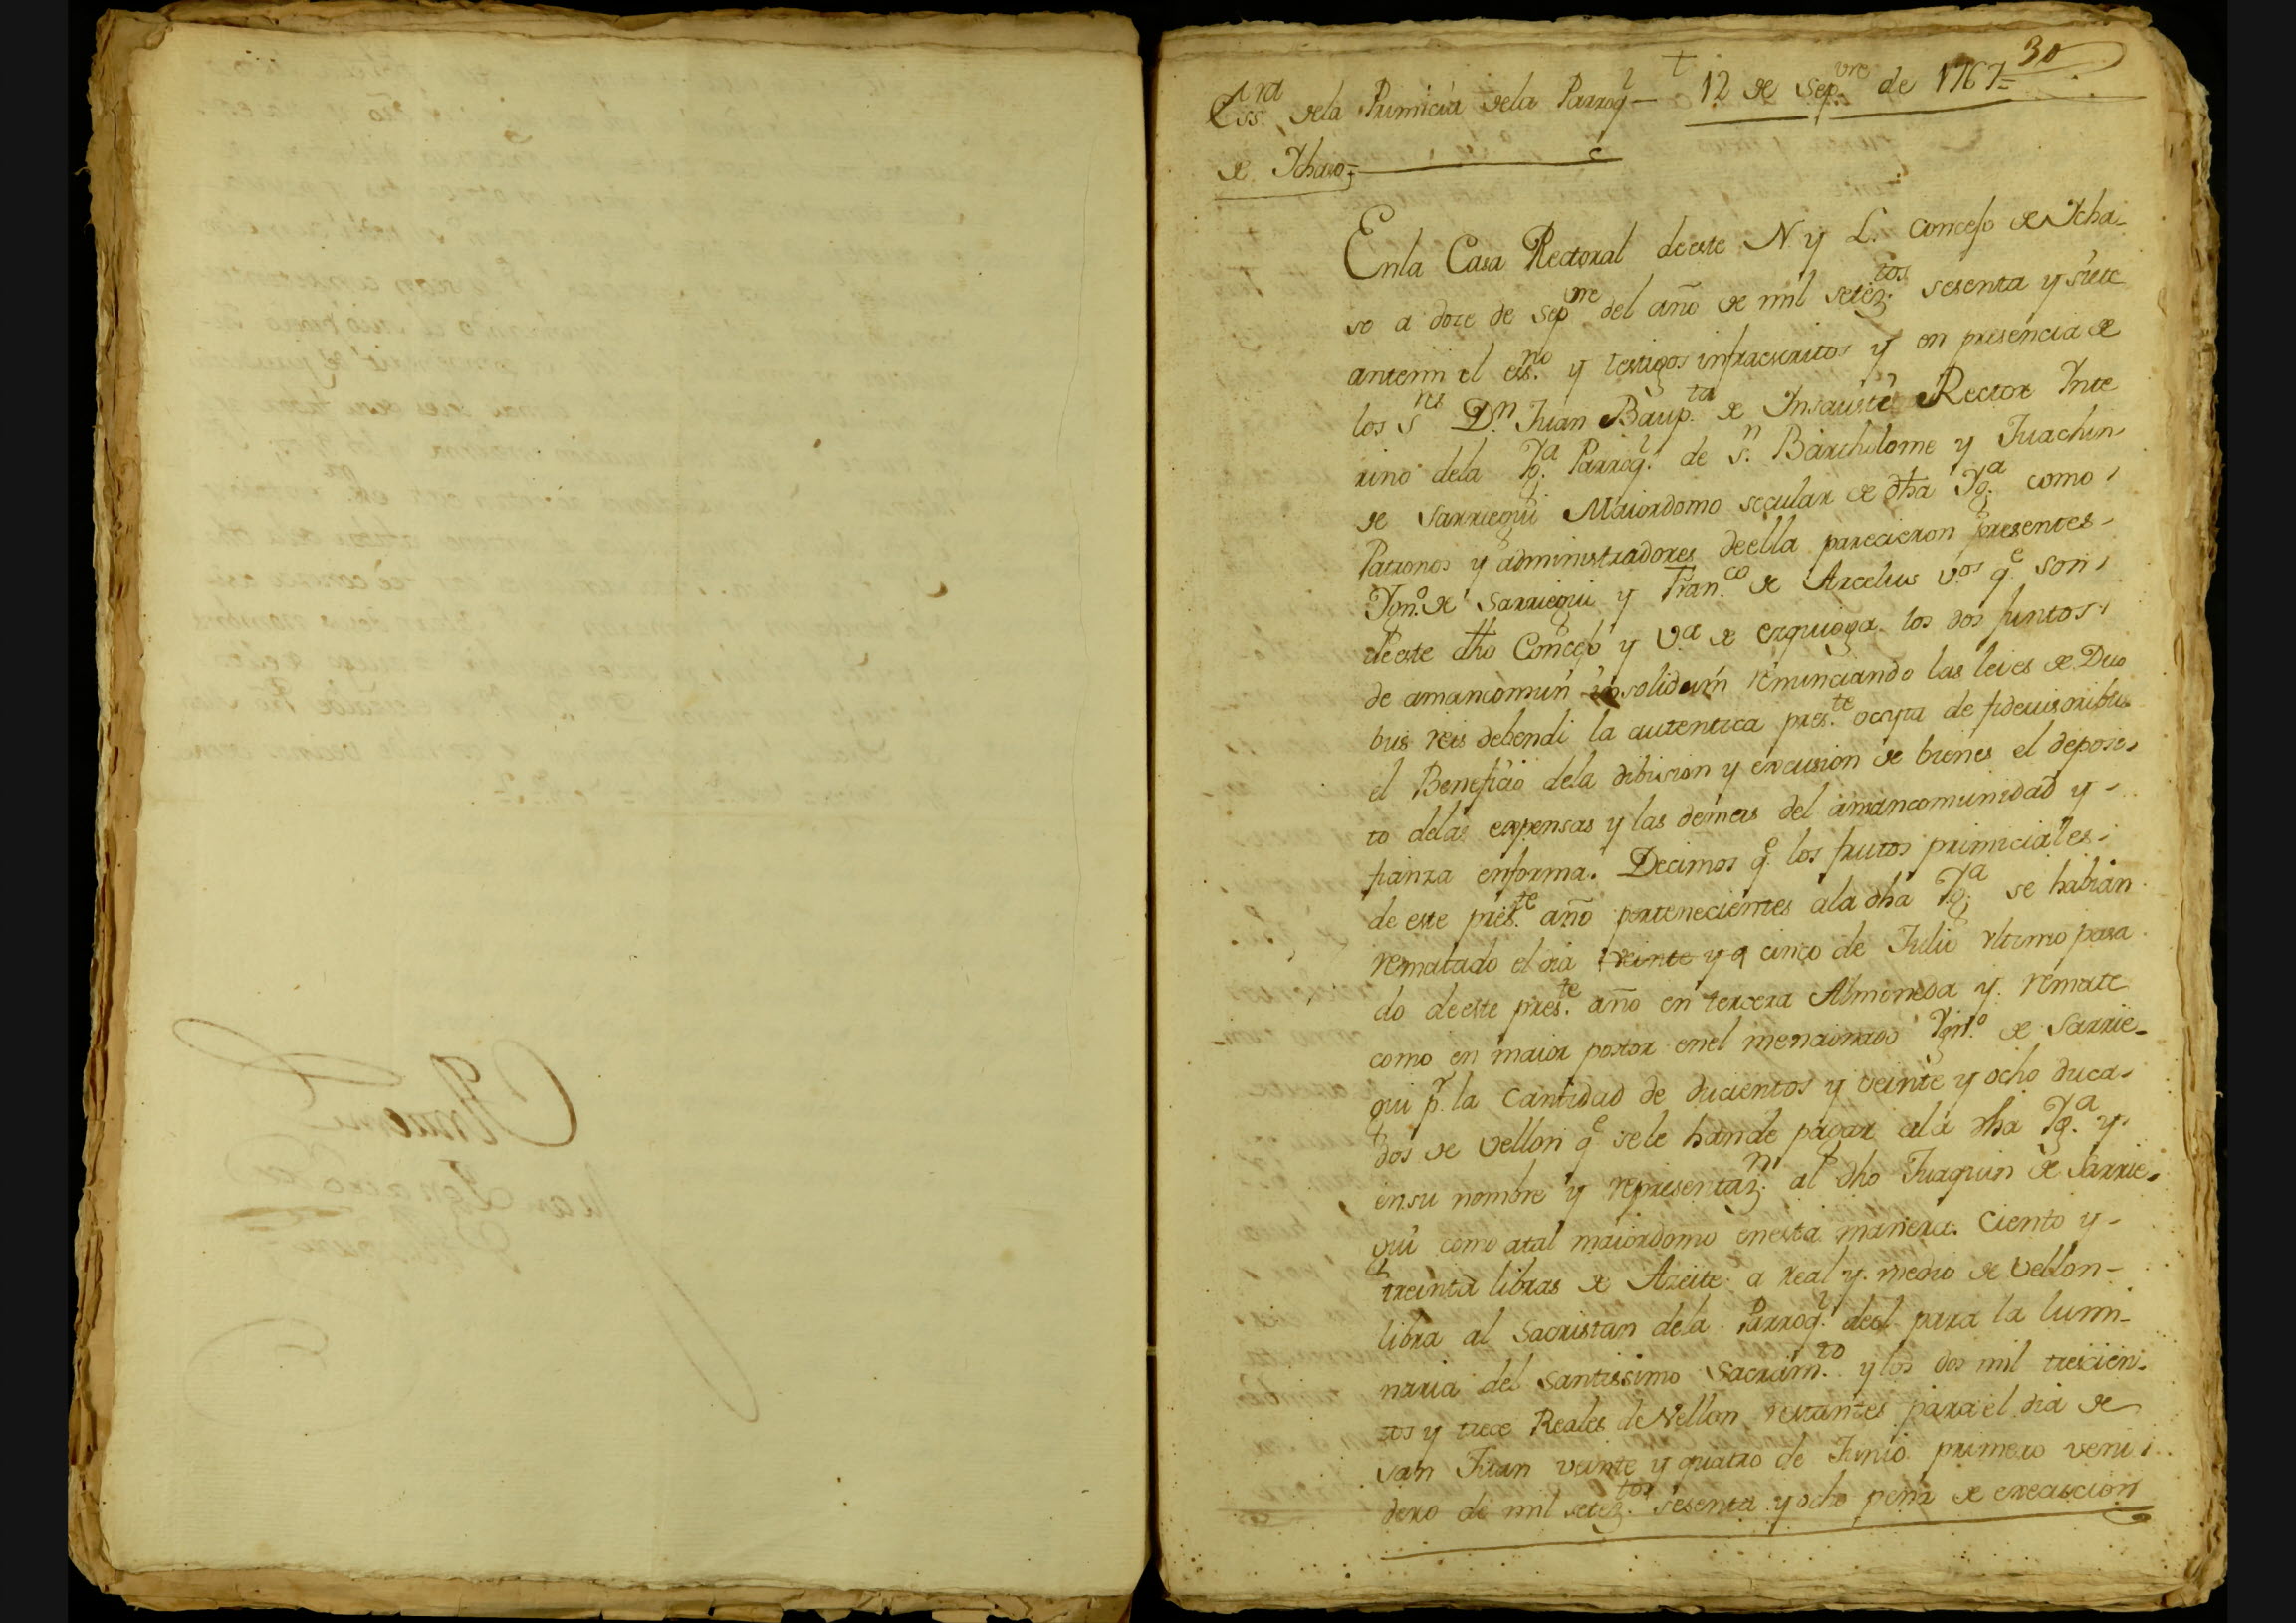 30
Essra dela Primicia dela Parroql — 12 de Sepvre de 1767=
de Ychaso=
Enla Casa Rectoral deeste N. y L. Concejo de Ycha-
so a doze de Sepvre del año de mil setez.tos sesenta y siete
antemi el ess.no y testigos infraescritos y en presencia de
los S.res D.n Juan Baup.ta de Insausti Rector Inte
rino dela Yg.a Parroq.l de S.n Bartholome y Juachin
de Sarriegui Maiordomo secular de dha Yg.a como
Patronos y administradores deella parecieron presentes
Ign.o de Sarriegui y Fran.co de Arcelus v.os q.e son
deeste dho Concejo y V.a de ezquioga los dos juntos
de amancomun insolidum renunciando las leies de Duo
bus reis debendi la autentica pres.te occyta de fideiusoribus
el Beneficio dela dibision y excusion de bienes el deposi
to delas expensas y las demas del amancomunidad y
fianza enforma. Decimos q.e los frutos primiciales
de este pres.te año pertenecientes ala dha Yg.a se habian
rematado el dia veinte y q cinco de Julio ultimo pasa
do deeste pres.te año en tercera Almoneda y remate
como en maior postor enel mencionado Ign.o de Sarrie-
gui p.r la Cantidad de ducientos y veinte y ocho duca
dos de Vellon q.e sele hande pagar ala dha Yg.a y
ensu nombre y representaz.n al dho Juaquin de Sarrie-
gui como atal maiordomo enesta manera. Ciento y
treinta libras de Azeite a real y medio de Vellon
libra al Sacristan dela Parroq.l deel para la lumi-
naria del Santissimo Sacram.to y los dos mil trescien-
tos y trece Reales de Vellon restantes para el dia de
San Juan veinte y quatro de Junio primero veni
dero de mil setez.tos sesenta y ocho pena de execucion